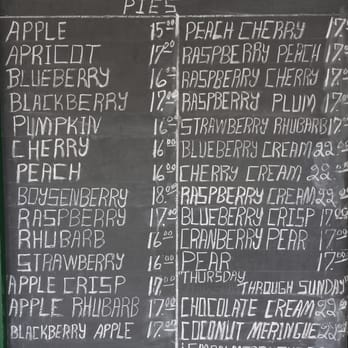 PIES
APPLE 15.00
APRICOT 17.00
BLUEBERRY 16.00
BLACKBERRY 17.00
PUMPKIN 16.00
CHERRY 16.00
PEACH 16.00
BOYSENBERRY 18.00
RASPBERRY 17.00
RHUBARB 16.00
STRAWBERRY 16.00
APPLE CRISP 17.00
APPLE RHUBARB 17.00
BLACKBERRY APPLE 17.00
PEACH CHERRY 17
RASPBERRY PEACH 17
RASPBERRY CHERRY 17
RASPBERRY PLUM 17
STRAWBERRY RHUBARB 17
BLUEBERRY CREAM 22.00
CHERRY CREAM 22
RASPBERRY CREAM 22
BLUEBERRY CRISP 17
CRANBERRY PEAR 17
PEAR 17.00
THURSDAY
THROUGH SUNDAY
CHOCOLATE CREAM 22
COCONUT MERINGUE 22
LEMON MERINGUE